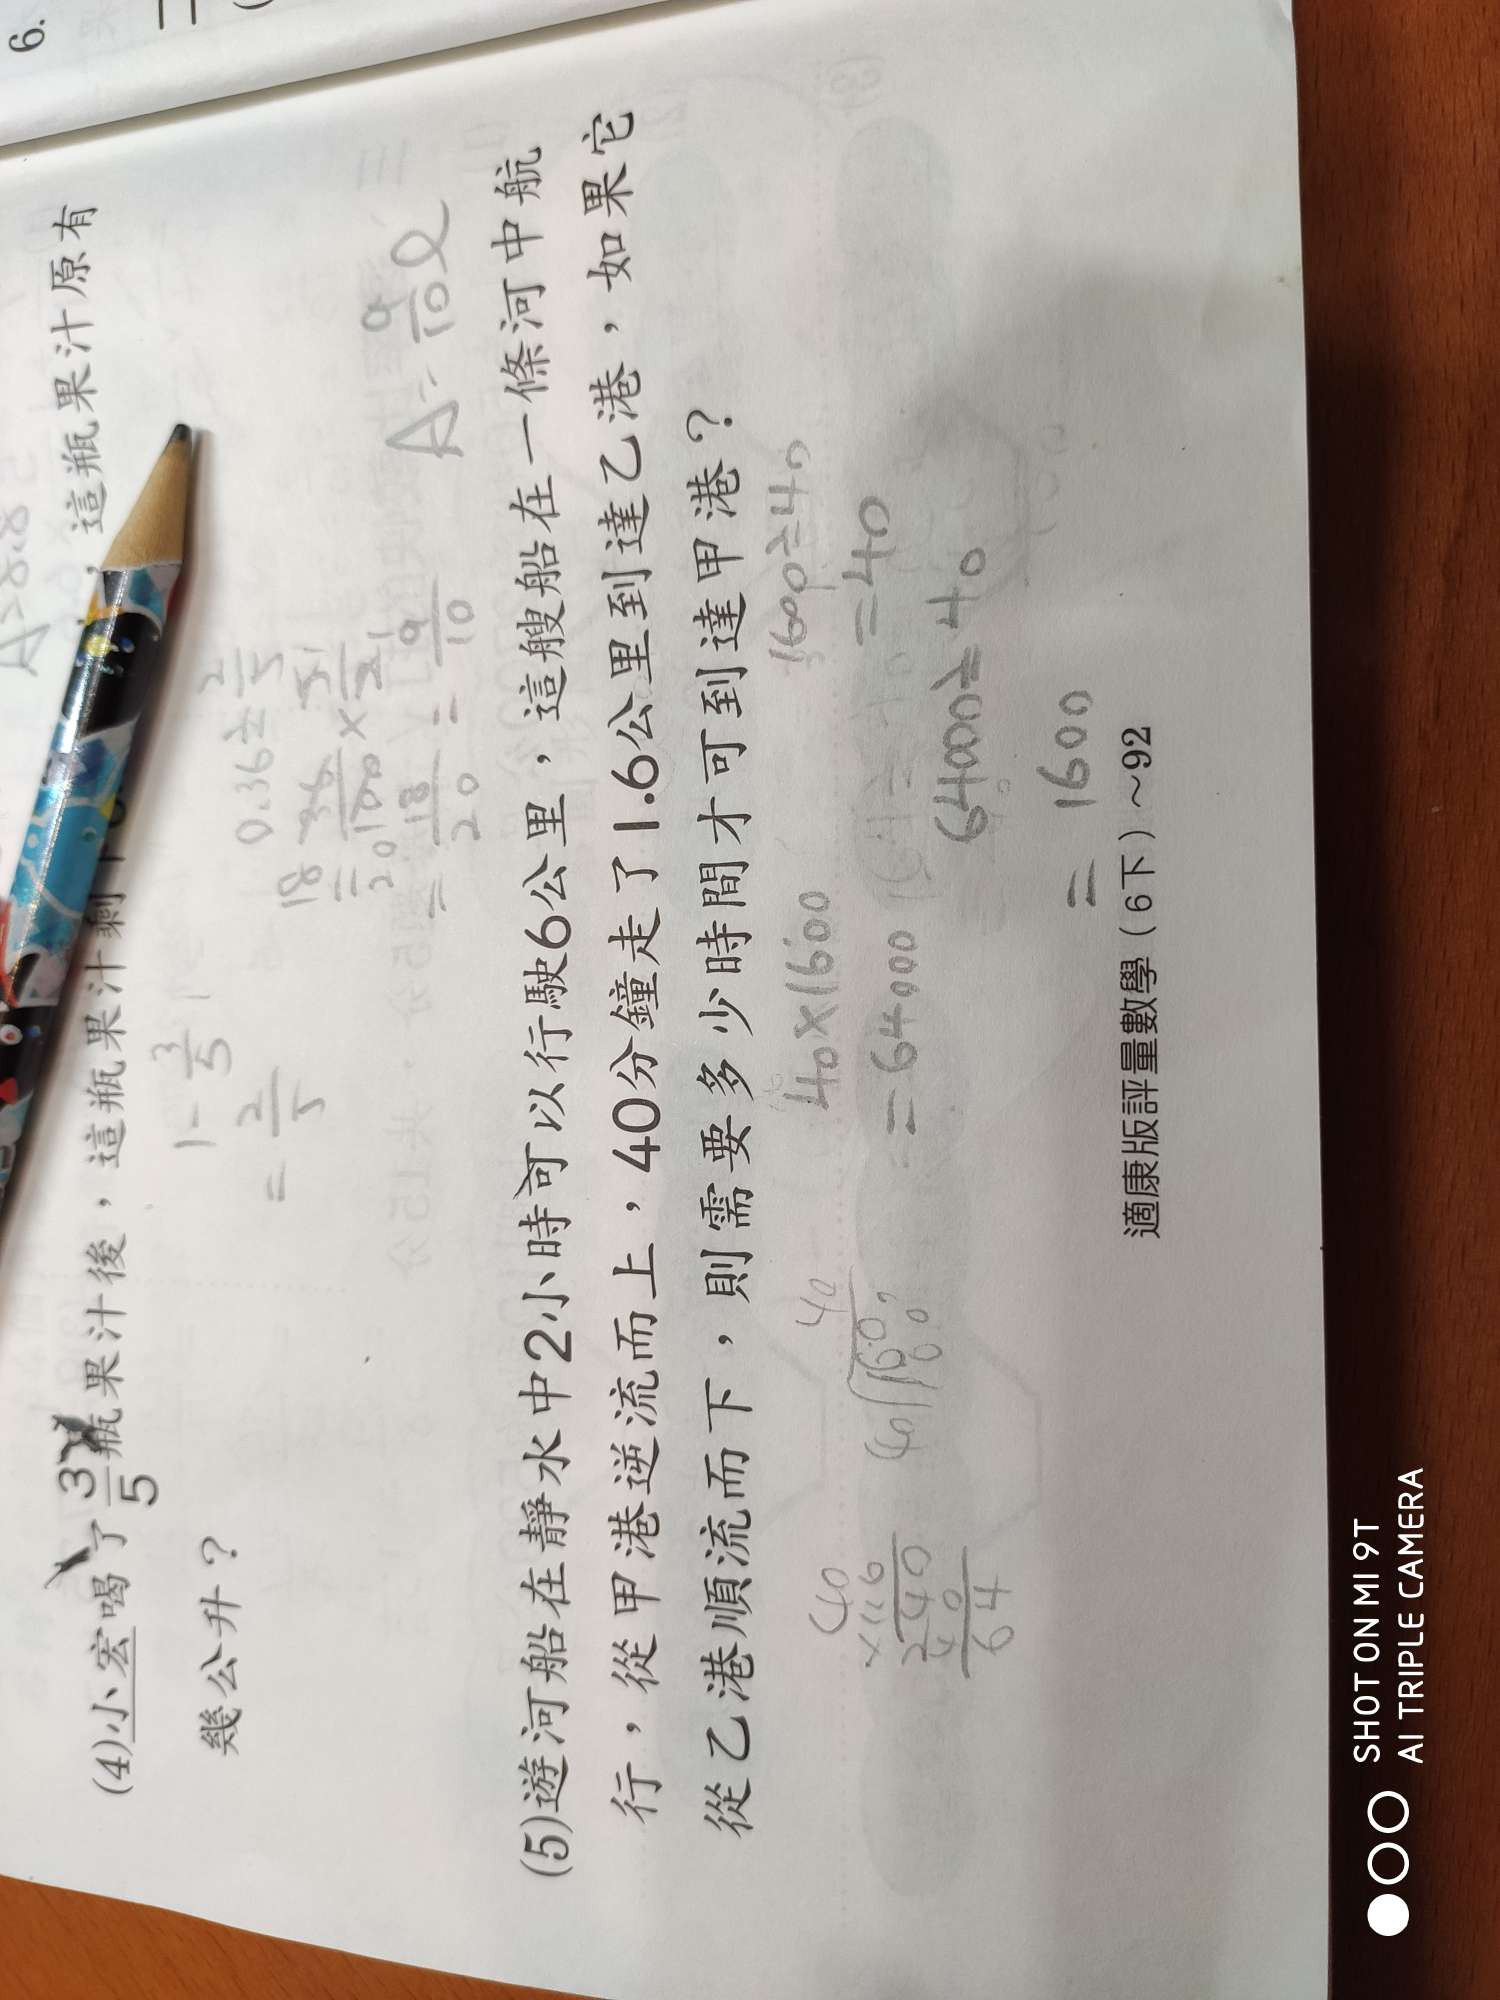 6.
(4)小宏喝了3/5瓶果汁後，這瓶果汁剩下0.36，這瓶果汁原有
幾公升？
1-3/5
=2/5
0.36÷2/5
=36/100×5/2
=18/20=9/10
A:9/10ℓ
(5)遊河船在靜水中2小時可以行駛6公里，這艘船在一條河中航
行，從甲港逆流而上，40分鐘走了1.6公里到達乙港，如果它
從乙港順流而下，則需要多少時間才可到達甲港？
40×1600
=64000
1600÷40
=40
64000÷40
=1600
適康版評量數學（6下）～92
SHOT ON MI 9T
AI TRIPLE CAMERA